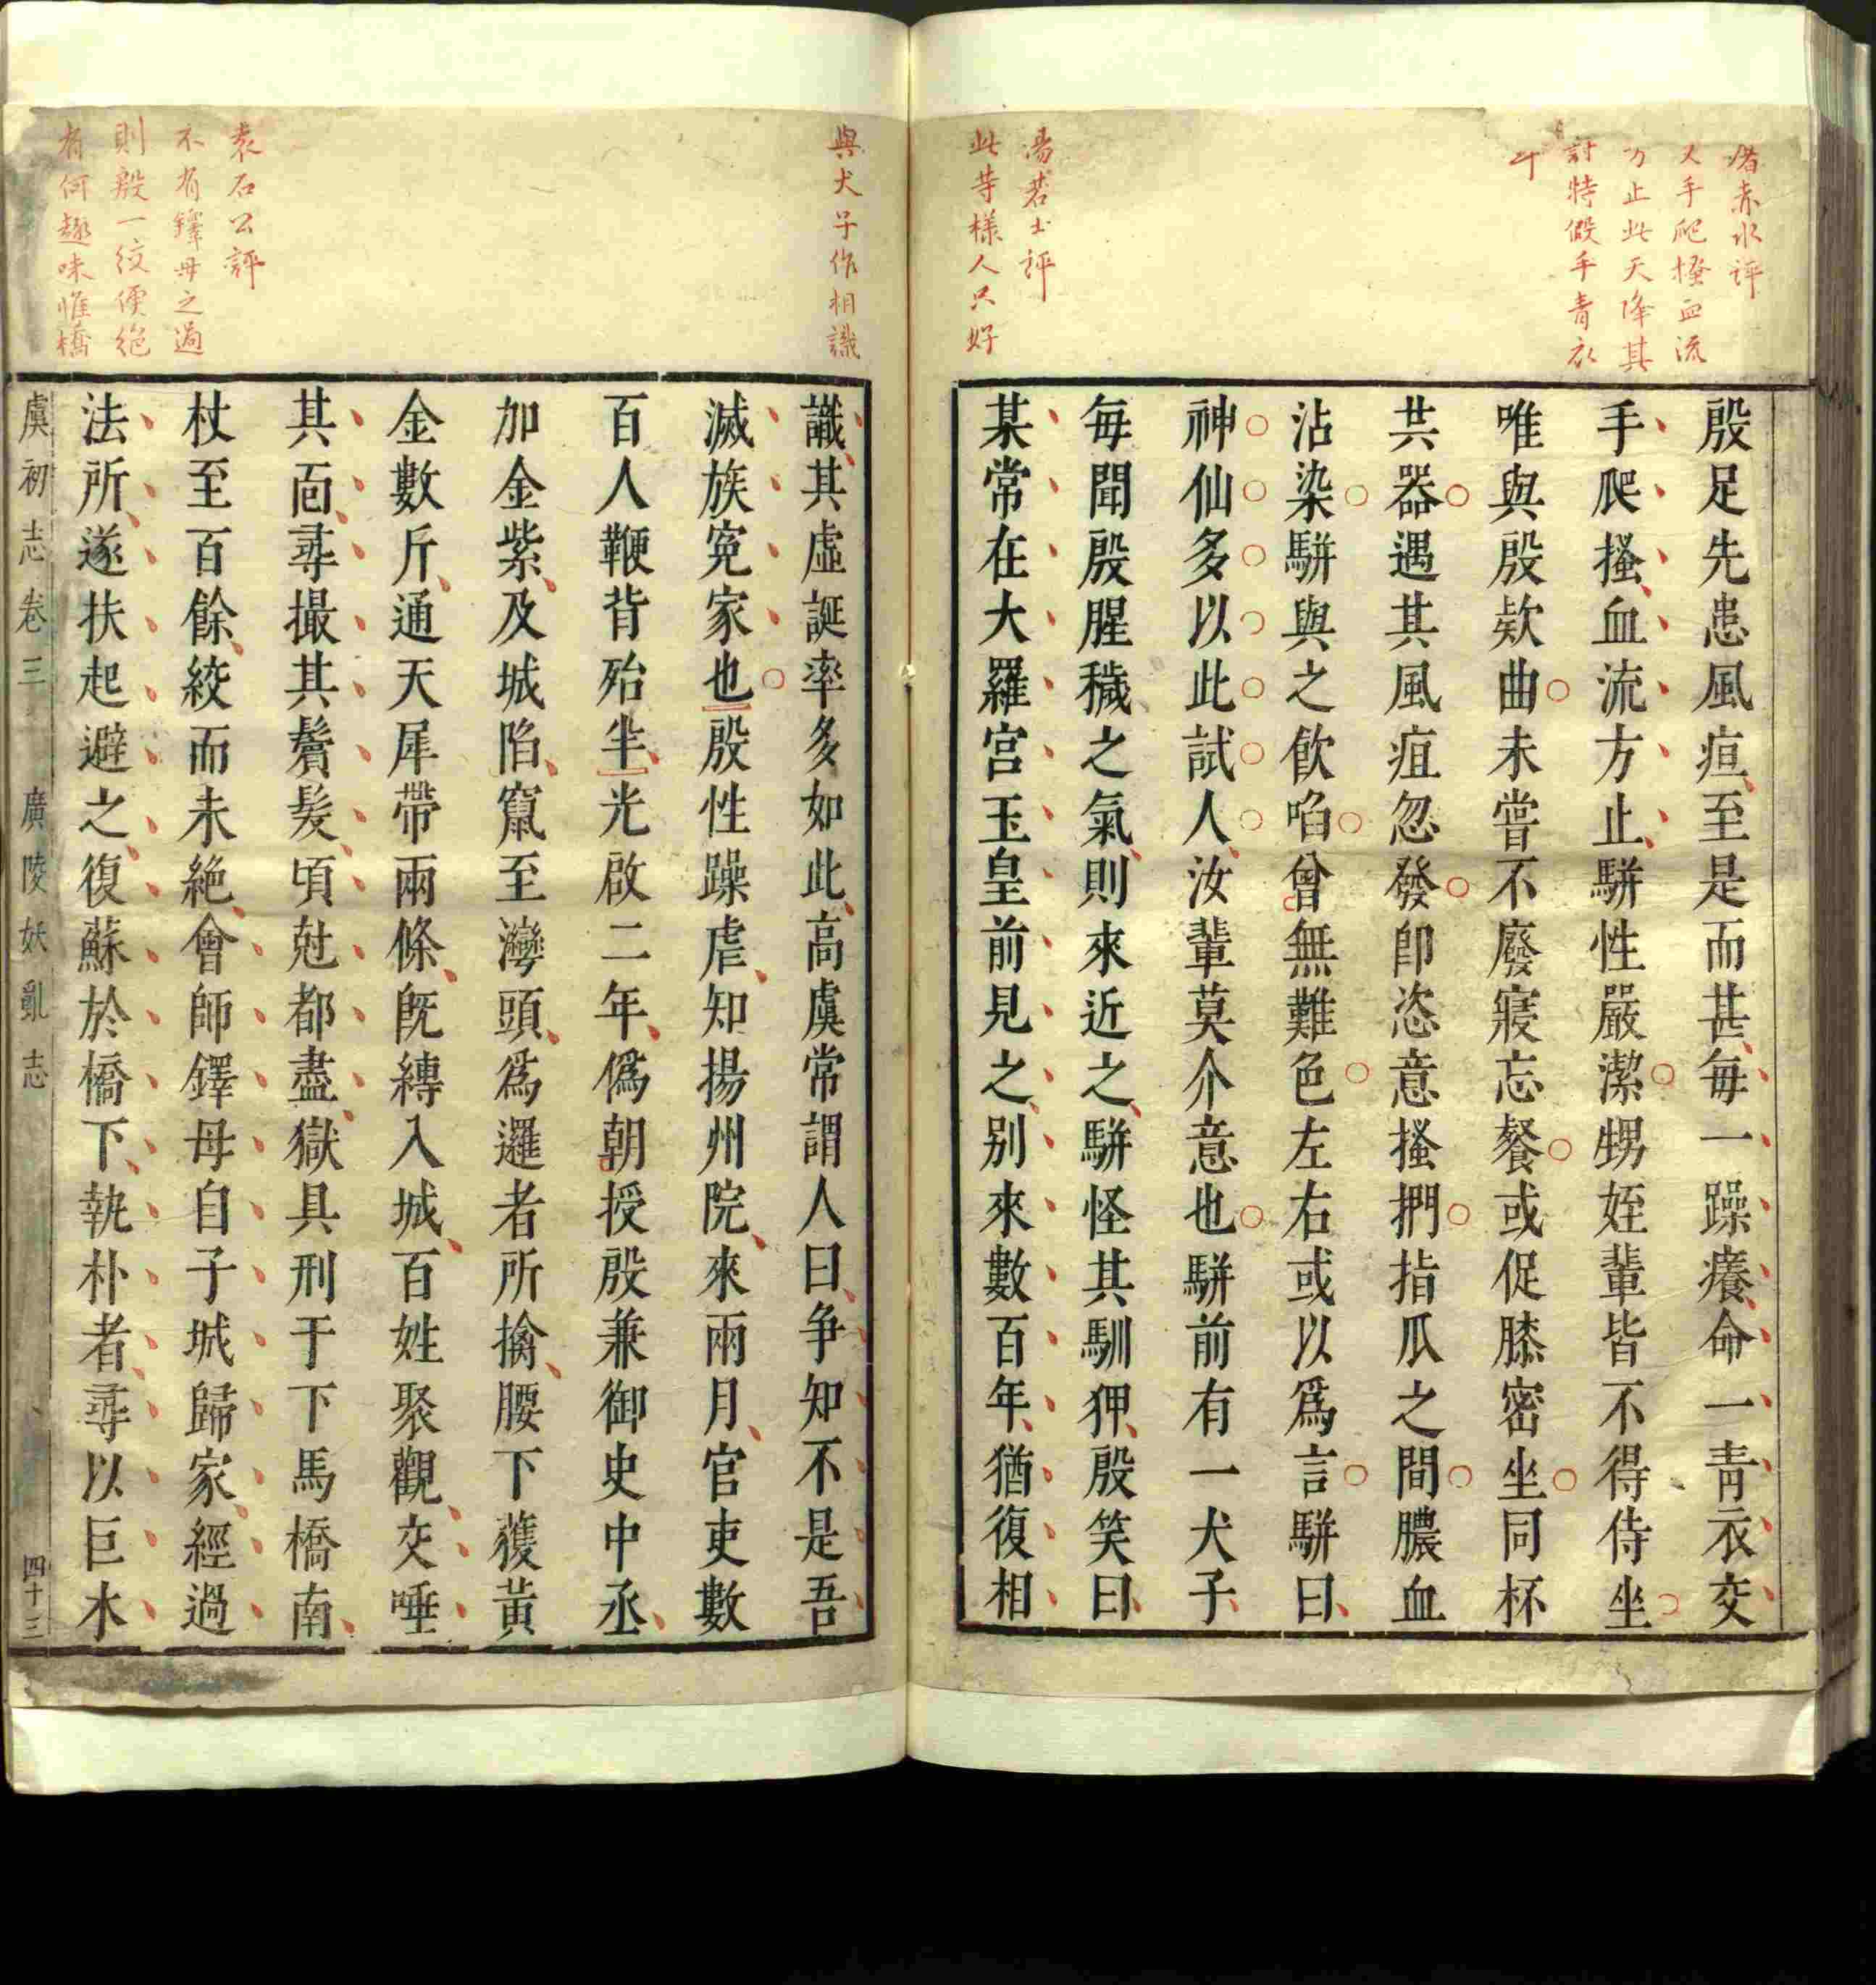 屠赤水評
又手爬搔血流
方止此天降其
討特假手青衣
耳
湯若士評
此等樣人只好
殷足先患風疽至是而甚每一躁癢命一青衣交
手爬搔血流方止駢性嚴潔甥姪輩皆不得侍坐
唯與殷欵曲未嘗不廢寢忘餐或促膝密坐同杯
共器遇其風疽忽發卽恣意搔捫指瓜之間膿血
沾染駢與之飮啗曾無難色左右或以爲言駢曰
神仙多以此試人汝輩莫介意也駢前有一犬子
每聞殷腥穢之氣則來近之駢怪其馴狎殷笑曰
某常在大羅宮玉皇前見之别來數百年猶復相
與犬子作相識
袁石公評
不有鐸母之過
則殷一絞便絕
有何趣味惟橋
譏其虛誕率多如此高虞常謂人曰争知不是吾
滅族寃家也殷性躁虐知揚州院來兩月官吏數
百人鞭背殆半光啟二年僞朝授殷兼御史中丞
加金紫及城陷竄至灣頭爲邏者所擒腰下獲黃
金數斤通天犀帶兩條旣縛入城百姓聚觀交唾
其面尋撮其鬢髮頃尅都盡獄具刑于下馬橋南
杖至百餘絞而未絕會師鐸母自子城歸家經過
法所遂扶起避之復蘇於橋下執朴者尋以巨木
虞初志卷三 廣陵妖亂志 四十三